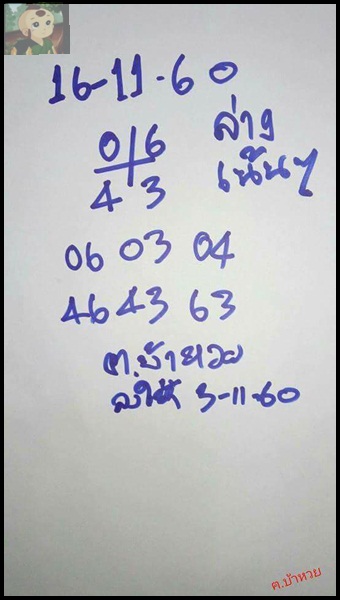 16-11-60
ล่าง
เน้นๆ
0|6
4|3
06 03 04
46 43 63
ต.บ้าหวย
ลงให้ 3-11-60
ต.บ้าหวย